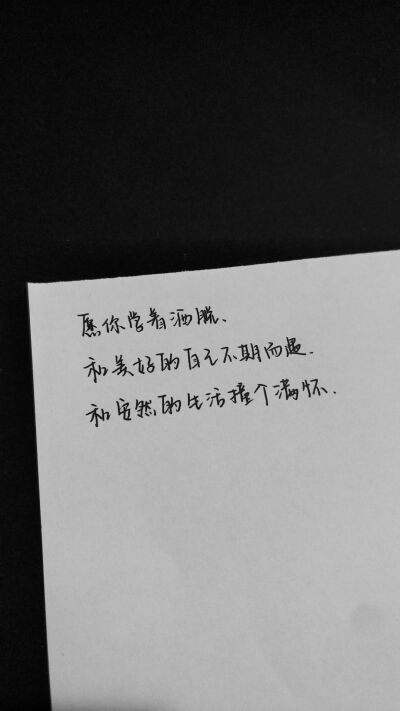 愿你学着洒脱.
和美好的自己不期而遇.
和安然的生活撞个满怀.